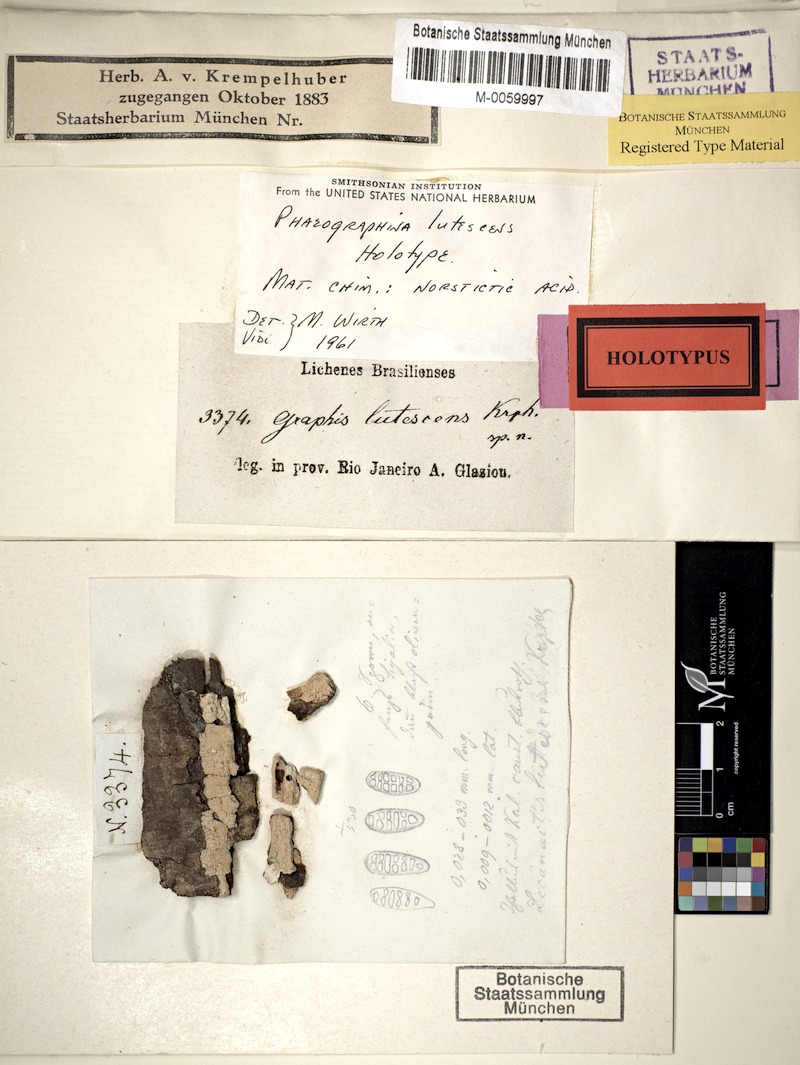 Herb. A. v. Krempelhuber
zugegangen Oktober 1883
Staatsherbarium München Nr.
Botanische Staatssammlung München
M-0059997
STAATS-
HERBARIUM
MÜNCHEN
BOTANISCHE STAATSSAMMLUNG
MÜNCHEN
Registered Type Material
SMITHSONIAN INSTITUTION
From the UNITED STATES NATIONAL HERBARIUM
PHAEOGRAPHINA lutescens
Holotype.
MAT. CHIM.: NORSTICTIC ACID.
DET. } M. WIRTH
VIDI } 1961
HOLOTYPUS
Lichenes Brasilienses
3374. Graphis lutescens Krph.
sp. n.
leg. in prov. Rio Janeiro A. Glaziou.
N. 3374.
6
1/530
0,028-033 mm. long.
0,009-0012 mm. lat.
Kal. caust.
lutescens Krphbr
BOTANISCHE
STAATSSAMMLUNG
MÜNCHEN
0 1 2
cm
copyright reserved
Botanische
Staatssammlung
München